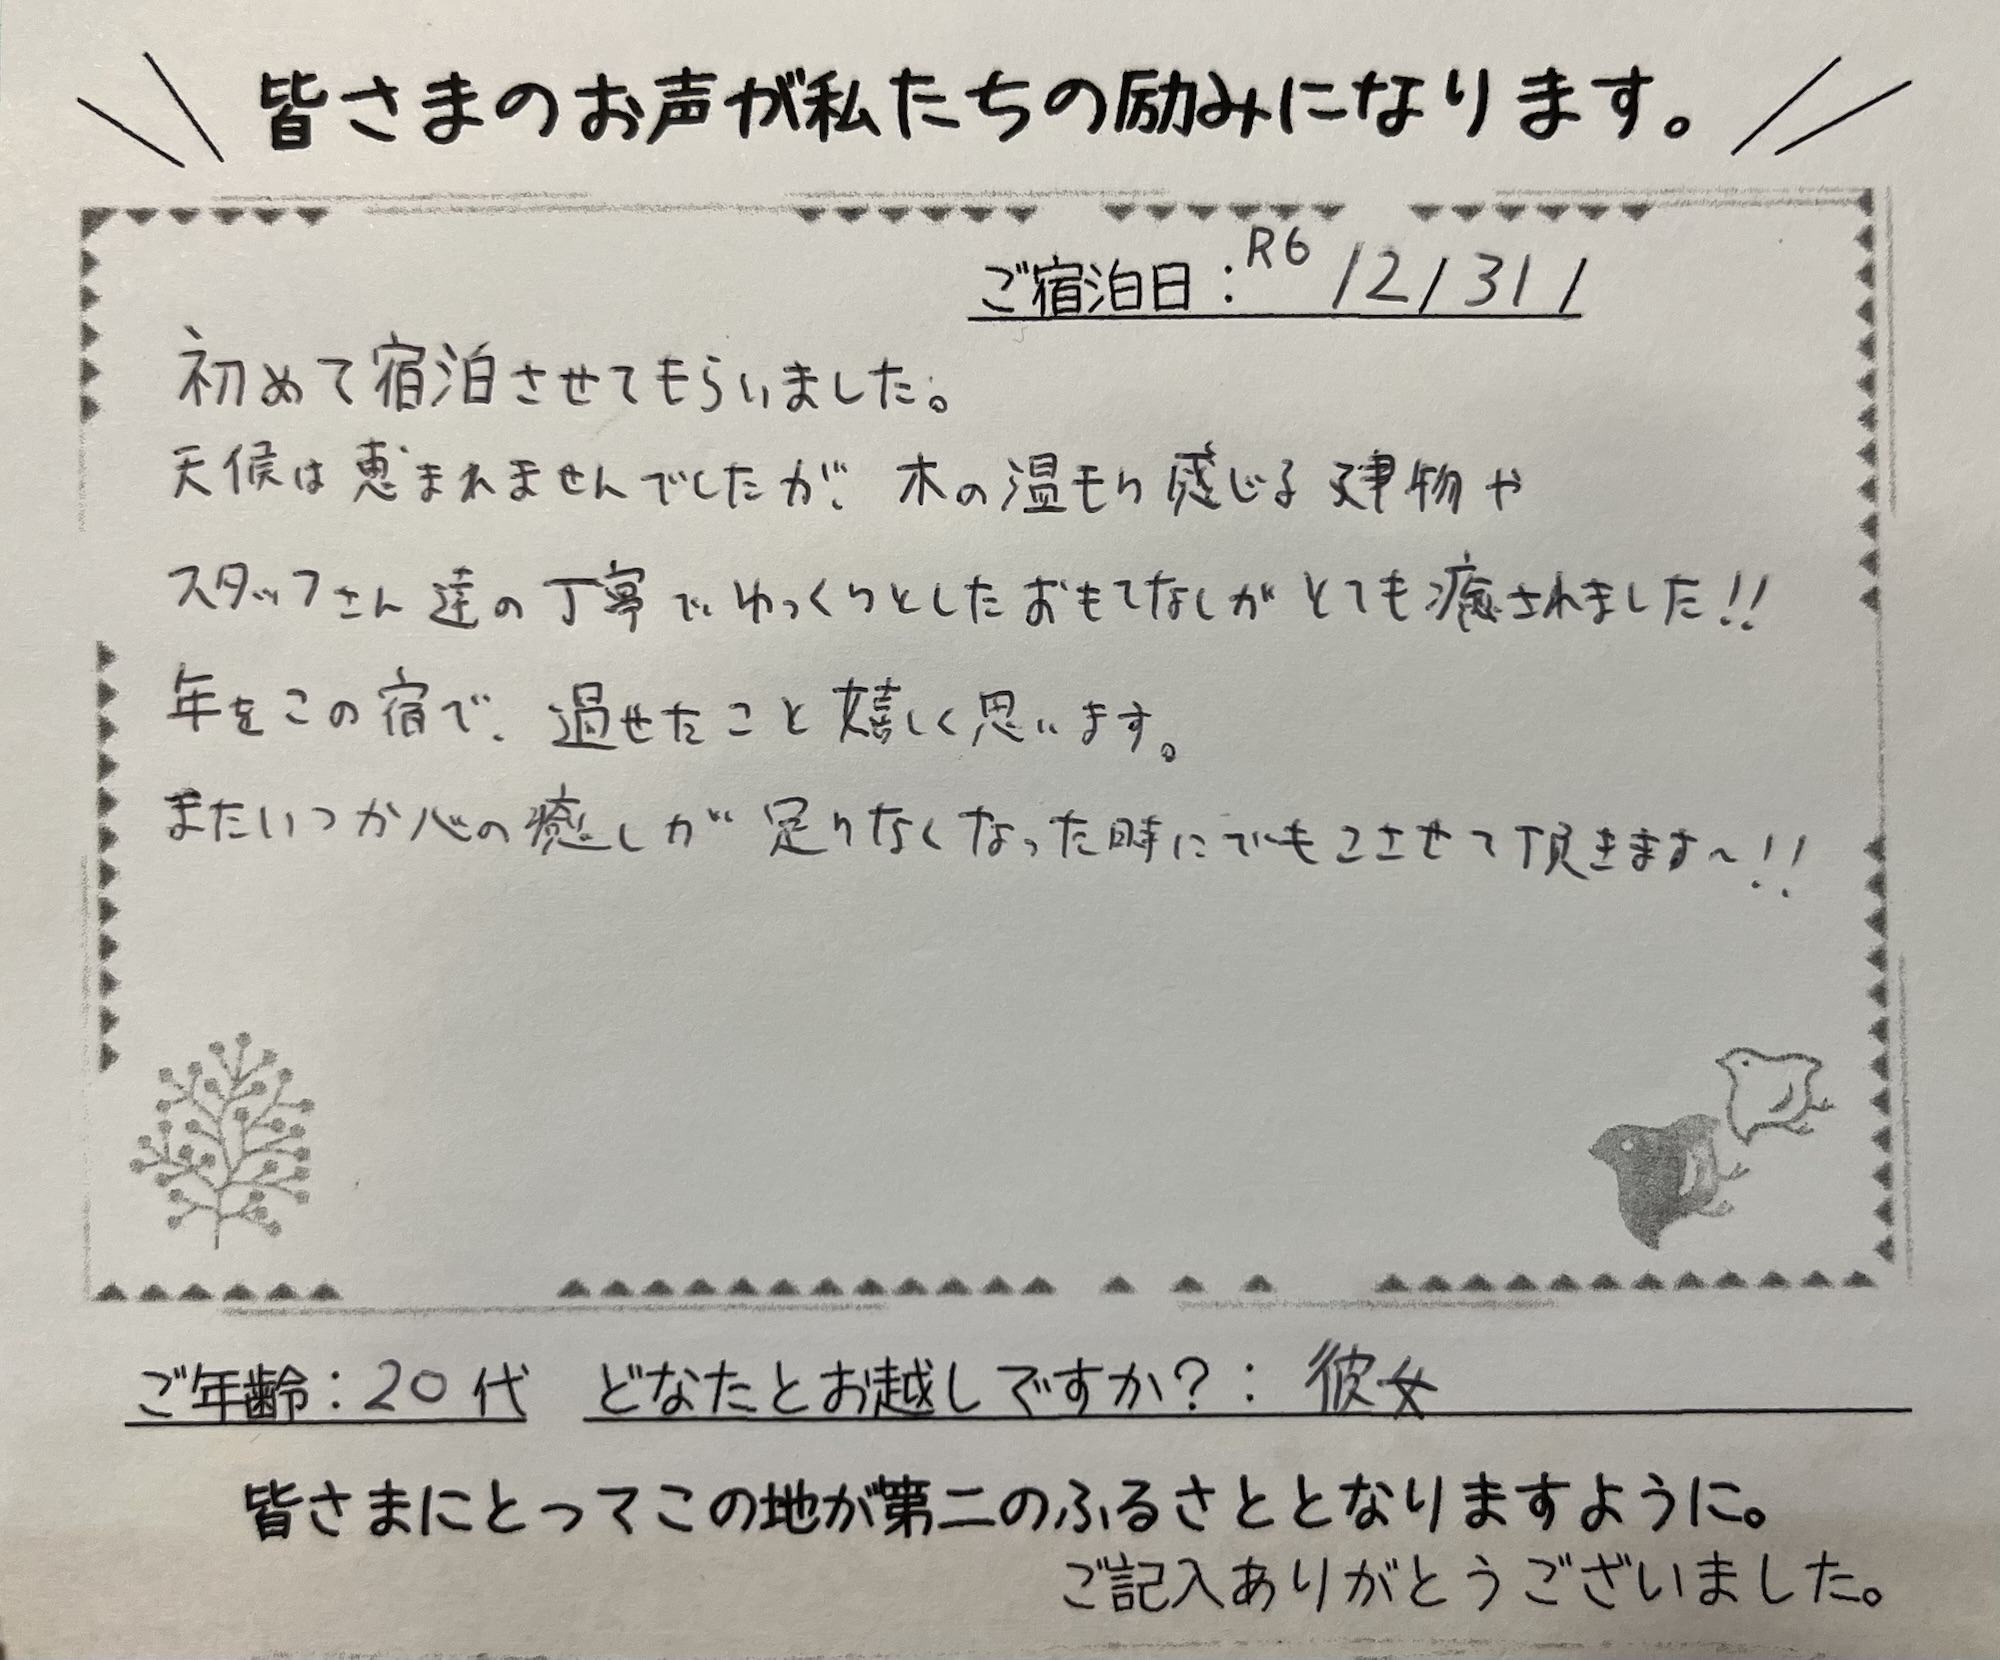 皆さまのお声が私たちの励みになります。
ご宿泊日：R6 12/31/
初めて宿泊させてもらいました。
天候は恵まれませんでしたが、木の温もり感じる建物や
スタッフさん達の丁寧でゆっくりとしたおもてなしがとても癒されました!!
年をこの宿で、過せたこと嬉しく思います。
またいつか心の癒しが足りなくなった時にでもこさせて頂きます〜!!
ご年齢：20代 どなたとお越しですか？：彼女
皆さまにとってこの地が第二のふるさととなりますように。
ご記入ありがとうございました。